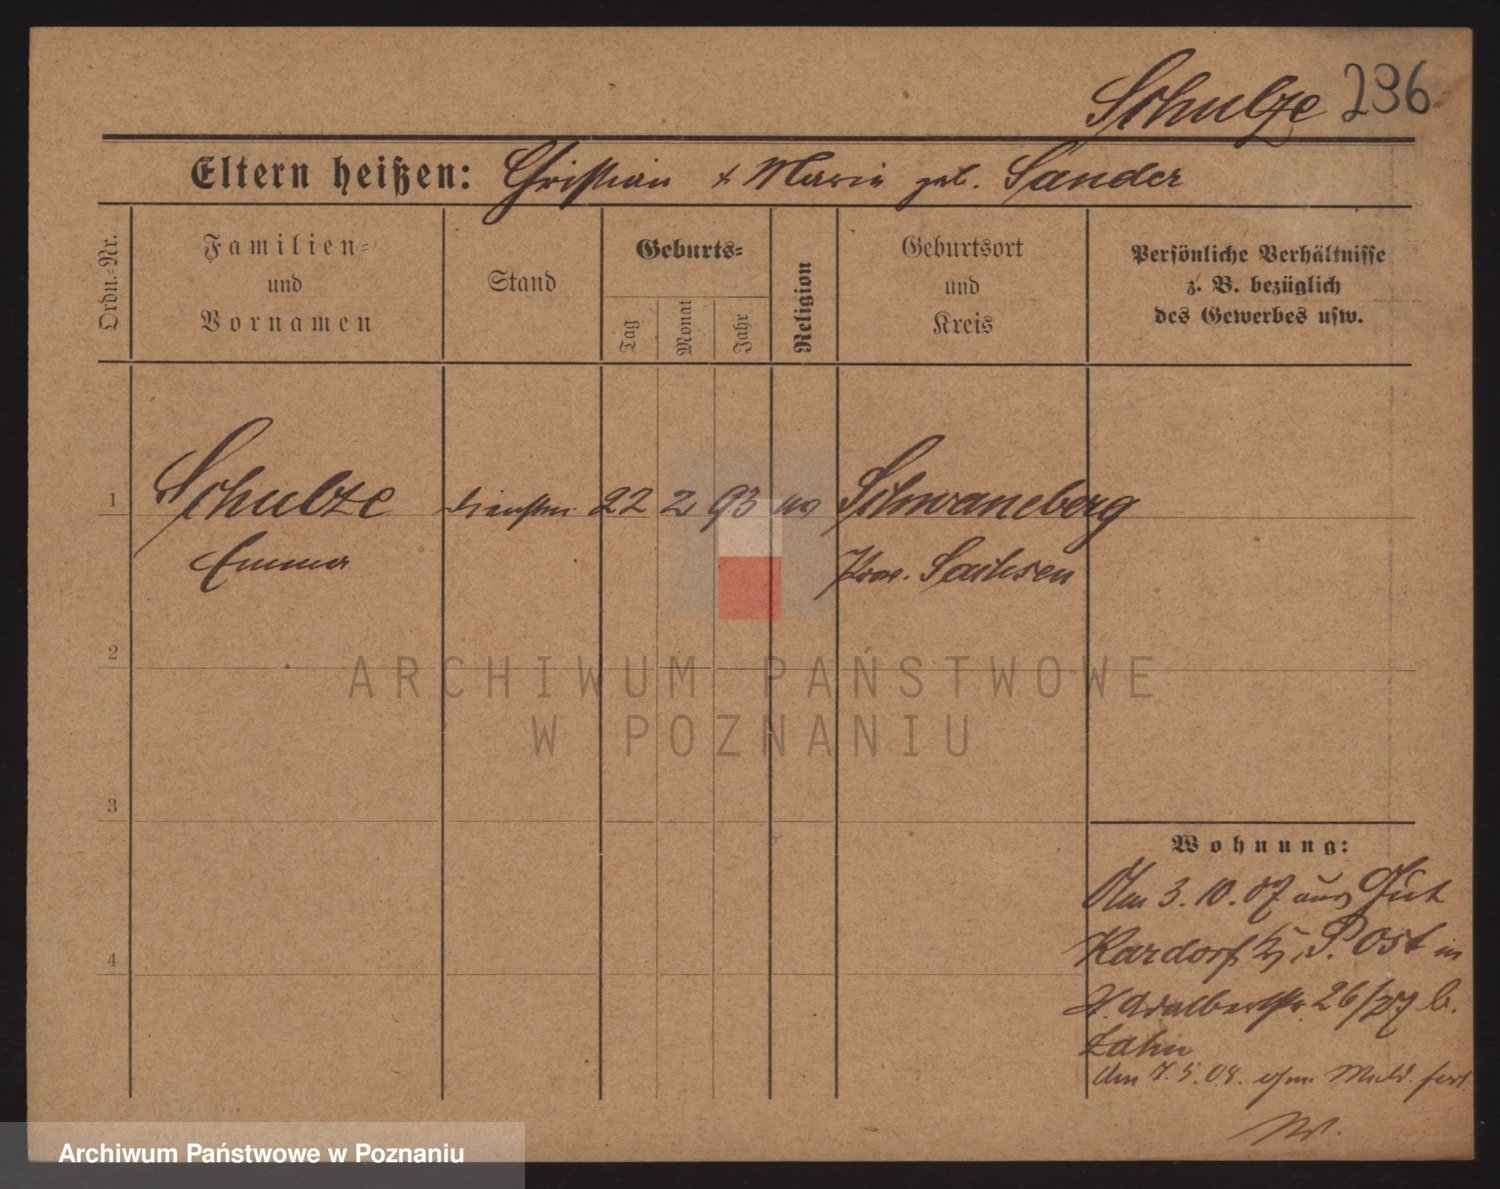 Schulze 236
Eltern heißen: Christian & Marie geb. Sander
Ordn.=Nr.
Familien=
und
Vornamen
Stand
Geburts=
Tag
Monat
Jahr
Religion
Geburtsort
und
Kreis
Persönliche Verhältnisse
z. B. bezüglich
des Gewerbes usw.
1 Schulze 22 2 93 Schwaneberg
Emma Prov. Sachsen
2
ARCHIWUM PAŃSTWOWE
W POZNANIU
3
Wohnung:
Am 3.10.07 aus Gut
Kardorf Post in
4
Adalbertstr. 26/27 b.
Zahn
Am 7.5.08. Meld. fort
Archiwum Państwowe w Poznaniu